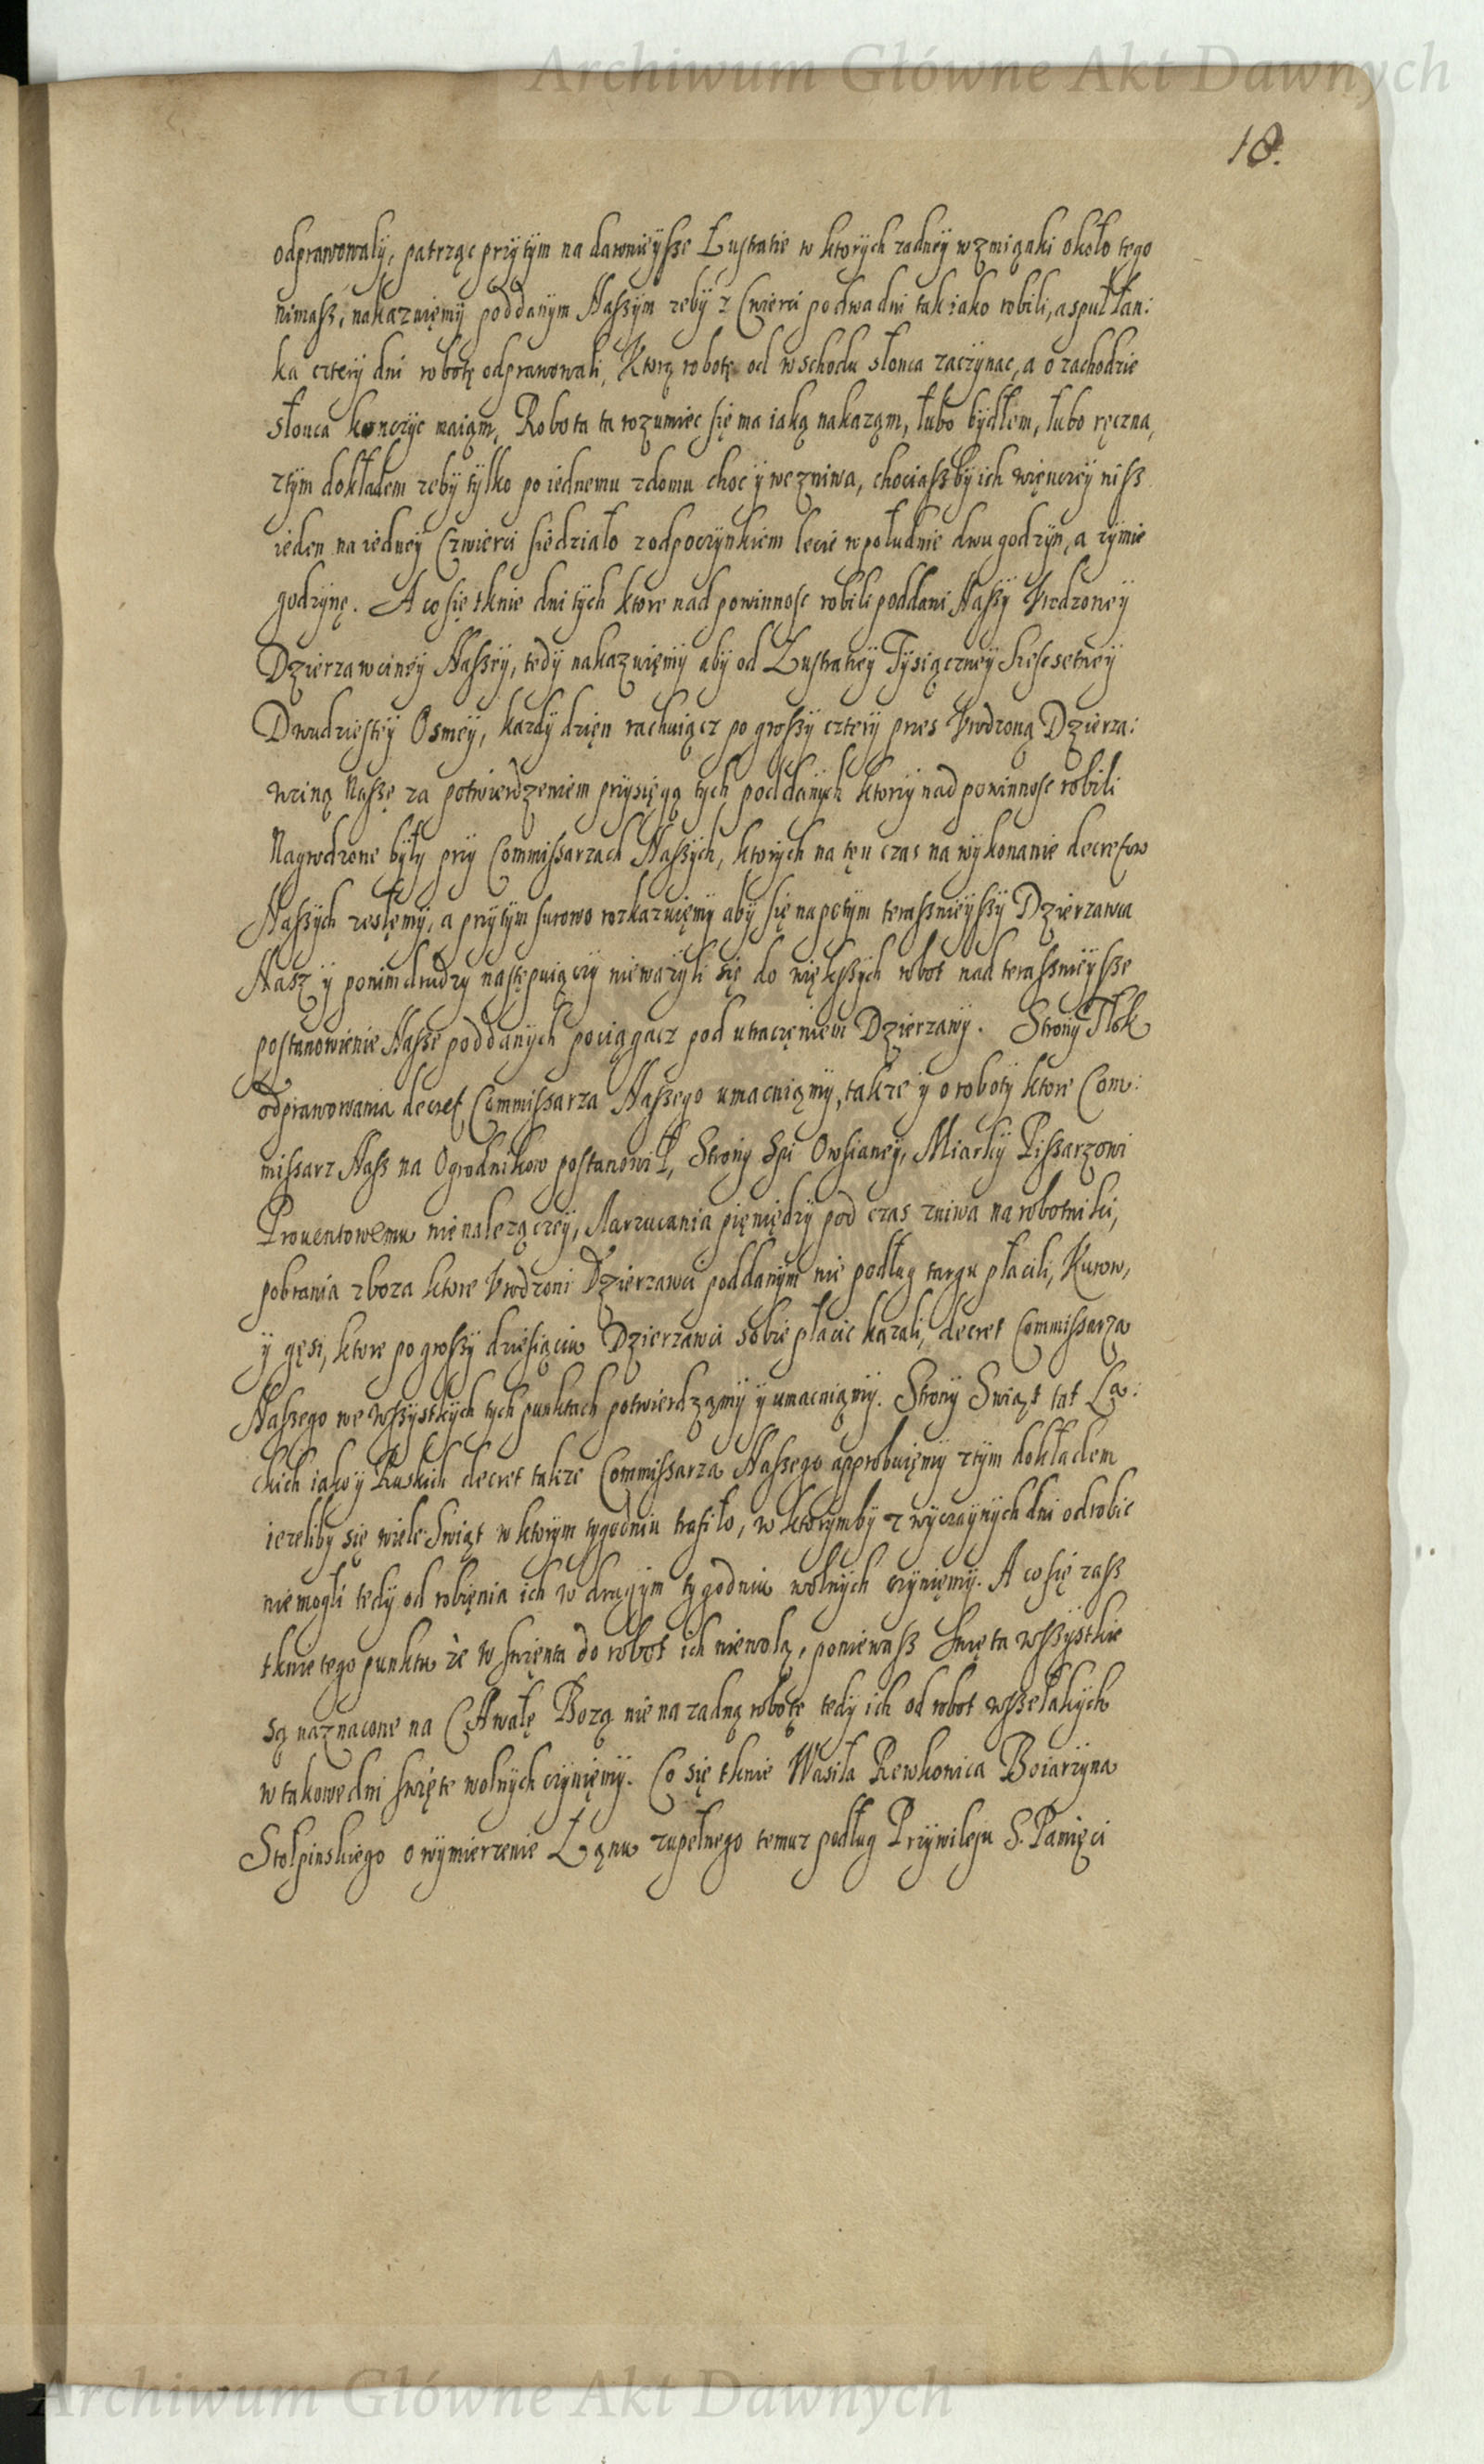 Archiwum Główne Akt Dawnych
18.
odprawowaly, patrząc przytym na dawnieysze Lustratie w ktorych zadney wzmiąnki około tego
nimasz, nakazuięmy poddanym Naszym zeby z Cwierci po dwa dni tak iako robili, a spułłan:
ka cztery dni robotę odprawowali, Ktorą robotę od wschodu słonca zaczynac, a o zachodzie
słonca konczyc maiąm, Robota ta rozumiec się ma iaką nakaząm, lubo bydłem, lubo ręczna,
ztym dokładem zeby tylko po iednemu zdomu choc y wezniwa, chociaszby ich więncey nisz
ieden na iedney Czwierci siedziało z odpoczynkiem lecie w południe dwu godzyn, a zymie
godzynę. A co się tknie dni tych ktore nad powinnosc robili poddani Naszy Urodzoney
Dzierzawciney Naszey, tedy nakazuięmy aby od Lustratiey Tysiączney Szescsetney
Dwudziestey Osmey, kazdy dzięn rachuiącz po groszy cztery przes Urodzoną Dzierza:
wziną Naszę za potwierdzeniem przysięgą tych poddanych ktorzy nad powinnosc robili
Nagrodzone były przy Commissarzach Naszych, ktorych na tęn czas na wykonanie decretow
Naszych zeslęmy, a przytym surowo rozkazuięmy aby się napotym terasznieyszy Dzierzawca
Nasz y ponim drudzy następuiączy niewazyli się do większych robot nad terasznieysze
postanowienie Nasze poddanych pociągacz pod utracęniem Dzierzawy. Strony Tłok
odprawowania decret Commissarza Naszego umacniąmy, takze y o roboty ktore Com:
missarz Nasz na Ogrodnikow postanowił, Strony Spi Owsianey, Miarky Pissarzowi
Prouentowemu nienalezączey, Narzucania pięniędzy pod czas zniwa na robotniki,
pobrania zboza ktore Urodzoni Dzierzawci poddanym nie podług targu płacili, Kurow,
y gęsi, ktore po groszy dziesiąciu Dzierzawci sobie płacic kazali, decret Commissarza
Naszego we wszystkych tych punktach potwierdząmy y umacniąmy. Strony Swiąt tat Lą:
ckich iako y Ruskich decret takze Commissarza Naszego approbuięmy ztym dokładem
iezeliby się wiele Swiąt w ktorym tygodniu trafiło, w ktorymby zwyczaynych dni odrobic
niemogli tedy od robięnia ich w drugym tygodniu wolnych czynięmy. A co się zasz
tknie tego punktu że w swięnta do robot ich niewolą, poniewasz swięta wszystkie
są naznacone na Chwałę Bozą nie na zadną robotę tedy ich od robot wszelakych
w takowe dni swięte wolnych czynięmy. Co się tknie Wasiła Rewkowica Boiarzyna
Stolpinskiego o wymierzenie Łąnu zupełnego temuz podług Przywileju S. Pamięci
Archiwum Główne Akt Dawnych